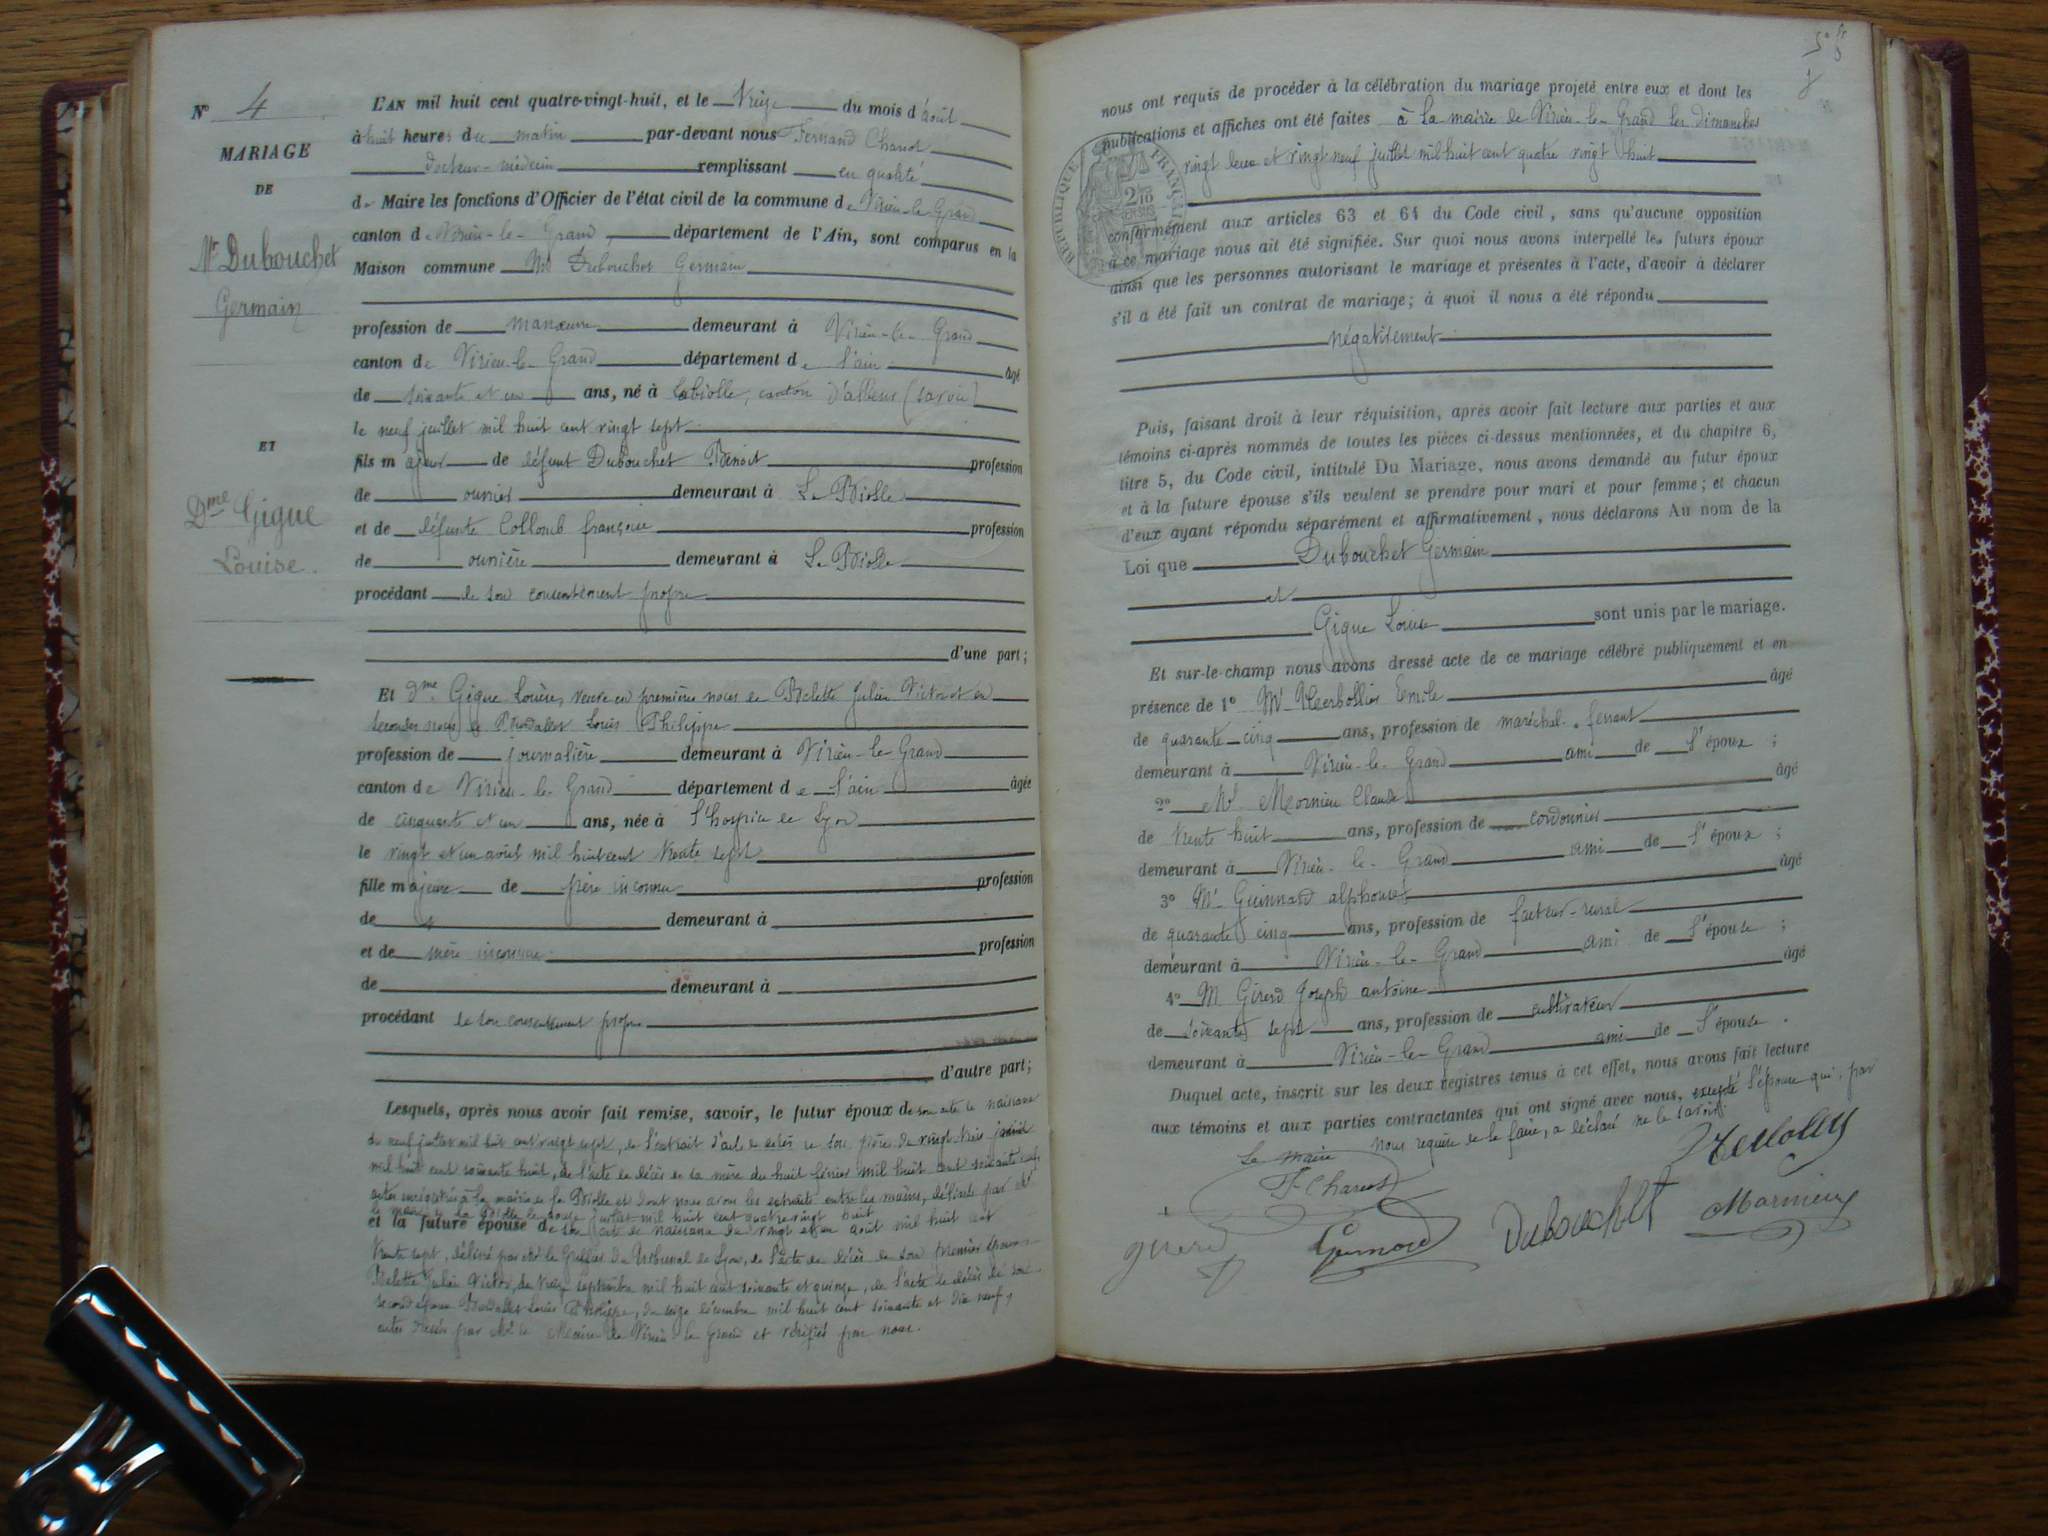 N° 4
MARIAGE
DE
Mr Dubouchet
Germain
ET
Dme Gigue
Louise.
L'AN mil huit cent quatre-vingt-huit, et le treize du mois d'août
à huit heures du matin par-devant nous Fernand
docteur-médecin remplissant en qualité
de Maire les fonctions d'Officier de l'état civil de la commune de Virieu-le-Grand
canton de Virieu-le-Grand, département de l'Ain, sont comparus en la
Maison commune Mr Dubouchet Germain
profession de manœuvre demeurant à Virieu-le-Grand
canton de Virieu-le-Grand département de l'ain âgé
de soixante et un ans, né à Labiolle, canton d'albens (savoie)
le neuf juillet mil huit cent vingt sept
fils majeur de défunt Dubouchet Benoit profession
de ouvrier demeurant à La Biolle
et de défunte Collomb françoise profession
de ouvrière demeurant à La Biolle
procédant de son consentement propre
d'une part;
Et Dme Gigue Louise, veuve en premières noces de Belotte Julien Victor et en
secondes noces de Louis Philippe
profession de journalière demeurant à Virieu-le-Grand
canton de Virieu-le-Grand département de l'ain âgée
de cinquante et un ans, née à l'hospice de Lyon
le vingt et un août mil huit cent trente sept
fille majeure de père inconnu profession
de demeurant à
et de mère inconnue profession
de demeurant à
procédant de son consentement propre
d'autre part;
Lesquels, après nous avoir fait remise, savoir, le futur époux de son acte de naissance
du neuf juillet mil huit cent vingt sept, de l'extrait d'acte de décès de son père du vingt trois
mil huit cent soixante huit, de l'acte de décès de sa mère du huit février mil huit cent soixante
actes enregistrés à la mairie de La Biolle et dont nous avons les extraits entre les mains, délivrés par Mr
le maire de La Biolle le douze juillet mil huit cent quatre vingt huit
et la future épouse de son acte de naissance du vingt et un août mil huit cent
trente sept, délivré par Mr le Greffier du Tribunal de Lyon, de l'acte de décès de son premier époux
Belotte Julien Victor, du treize septembre mil huit cent soixante et quinze, de l'acte de décès de son
second époux Louis Philippe, du seize décembre mil huit cent soixante et dix neuf,
actes dressés par Mr le Maire de Virieu-le-Grand et vérifiés par nous.
nous ont requis de procéder à la célébration du mariage projeté entre eux et dont les
publications et affiches ont été faites à la mairie de Virieu-le-Grand les dimanches
vingt deux et vingt neuf juillet mil huit cent quatre vingt huit
RÉPUBLIQUE FRANÇAISE
conformément aux articles 63 et 64 du Code civil, sans qu'aucune opposition
à ce mariage nous ait été signifiée. Sur quoi nous avons interpellé les futurs époux
ainsi que les personnes autorisant le mariage et présentes à l'acte, d'avoir à déclarer
s'il a été fait un contrat de mariage; à quoi il nous a été répondu
négativement
Puis, faisant droit à leur réquisition, après avoir fait lecture aux parties et aux
témoins ci-après nommés de toutes les pièces ci-dessus mentionnées, et du chapitre 6,
titre 5, du Code civil, intitulé Du Mariage, nous avons demandé au futur époux
et à la future épouse s'ils veulent se prendre pour mari et pour femme; et chacun
d'eux ayant répondu séparément et affirmativement, nous déclarons Au nom de la
Loi que Dubouchet Germain
et
Gigue Louise sont unis par le mariage.
Et sur-le-champ nous avons dressé acte de ce mariage célébré publiquement et en
présence de 1° Mr Emile âgé
de quarante-cinq ans, profession de maréchal-ferrant
demeurant à Virieu-le-Grand ami de l'époux;
2° Mr Mornieu Claude âgé
de trente huit ans, profession de cordonnier
demeurant à Virieu-le-Grand ami de l'époux;
3° Mr alphonse âgé
de quarante cinq ans, profession de facteur-rural
demeurant à Virieu-le-Grand ami de l'épouse;
4° M Girerd Joseph antoine âgé
de soixante sept ans, profession de cultivateur
demeurant à Virieu-le-Grand ami de l'épouse.
Duquel acte, inscrit sur les deux registres tenus à cet effet, nous avons fait lecture
aux témoins et aux parties contractantes qui ont signé avec nous, excepté l'épouse qui, par
nous requise de le faire, a déclaré ne le savoir.
Le maire
Dubouchet